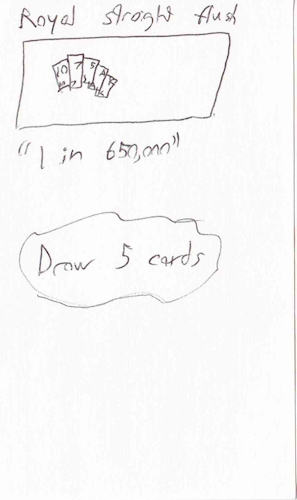 Royal straight flush
10 7 5
"1 in 650,000"
Draw 5 cards